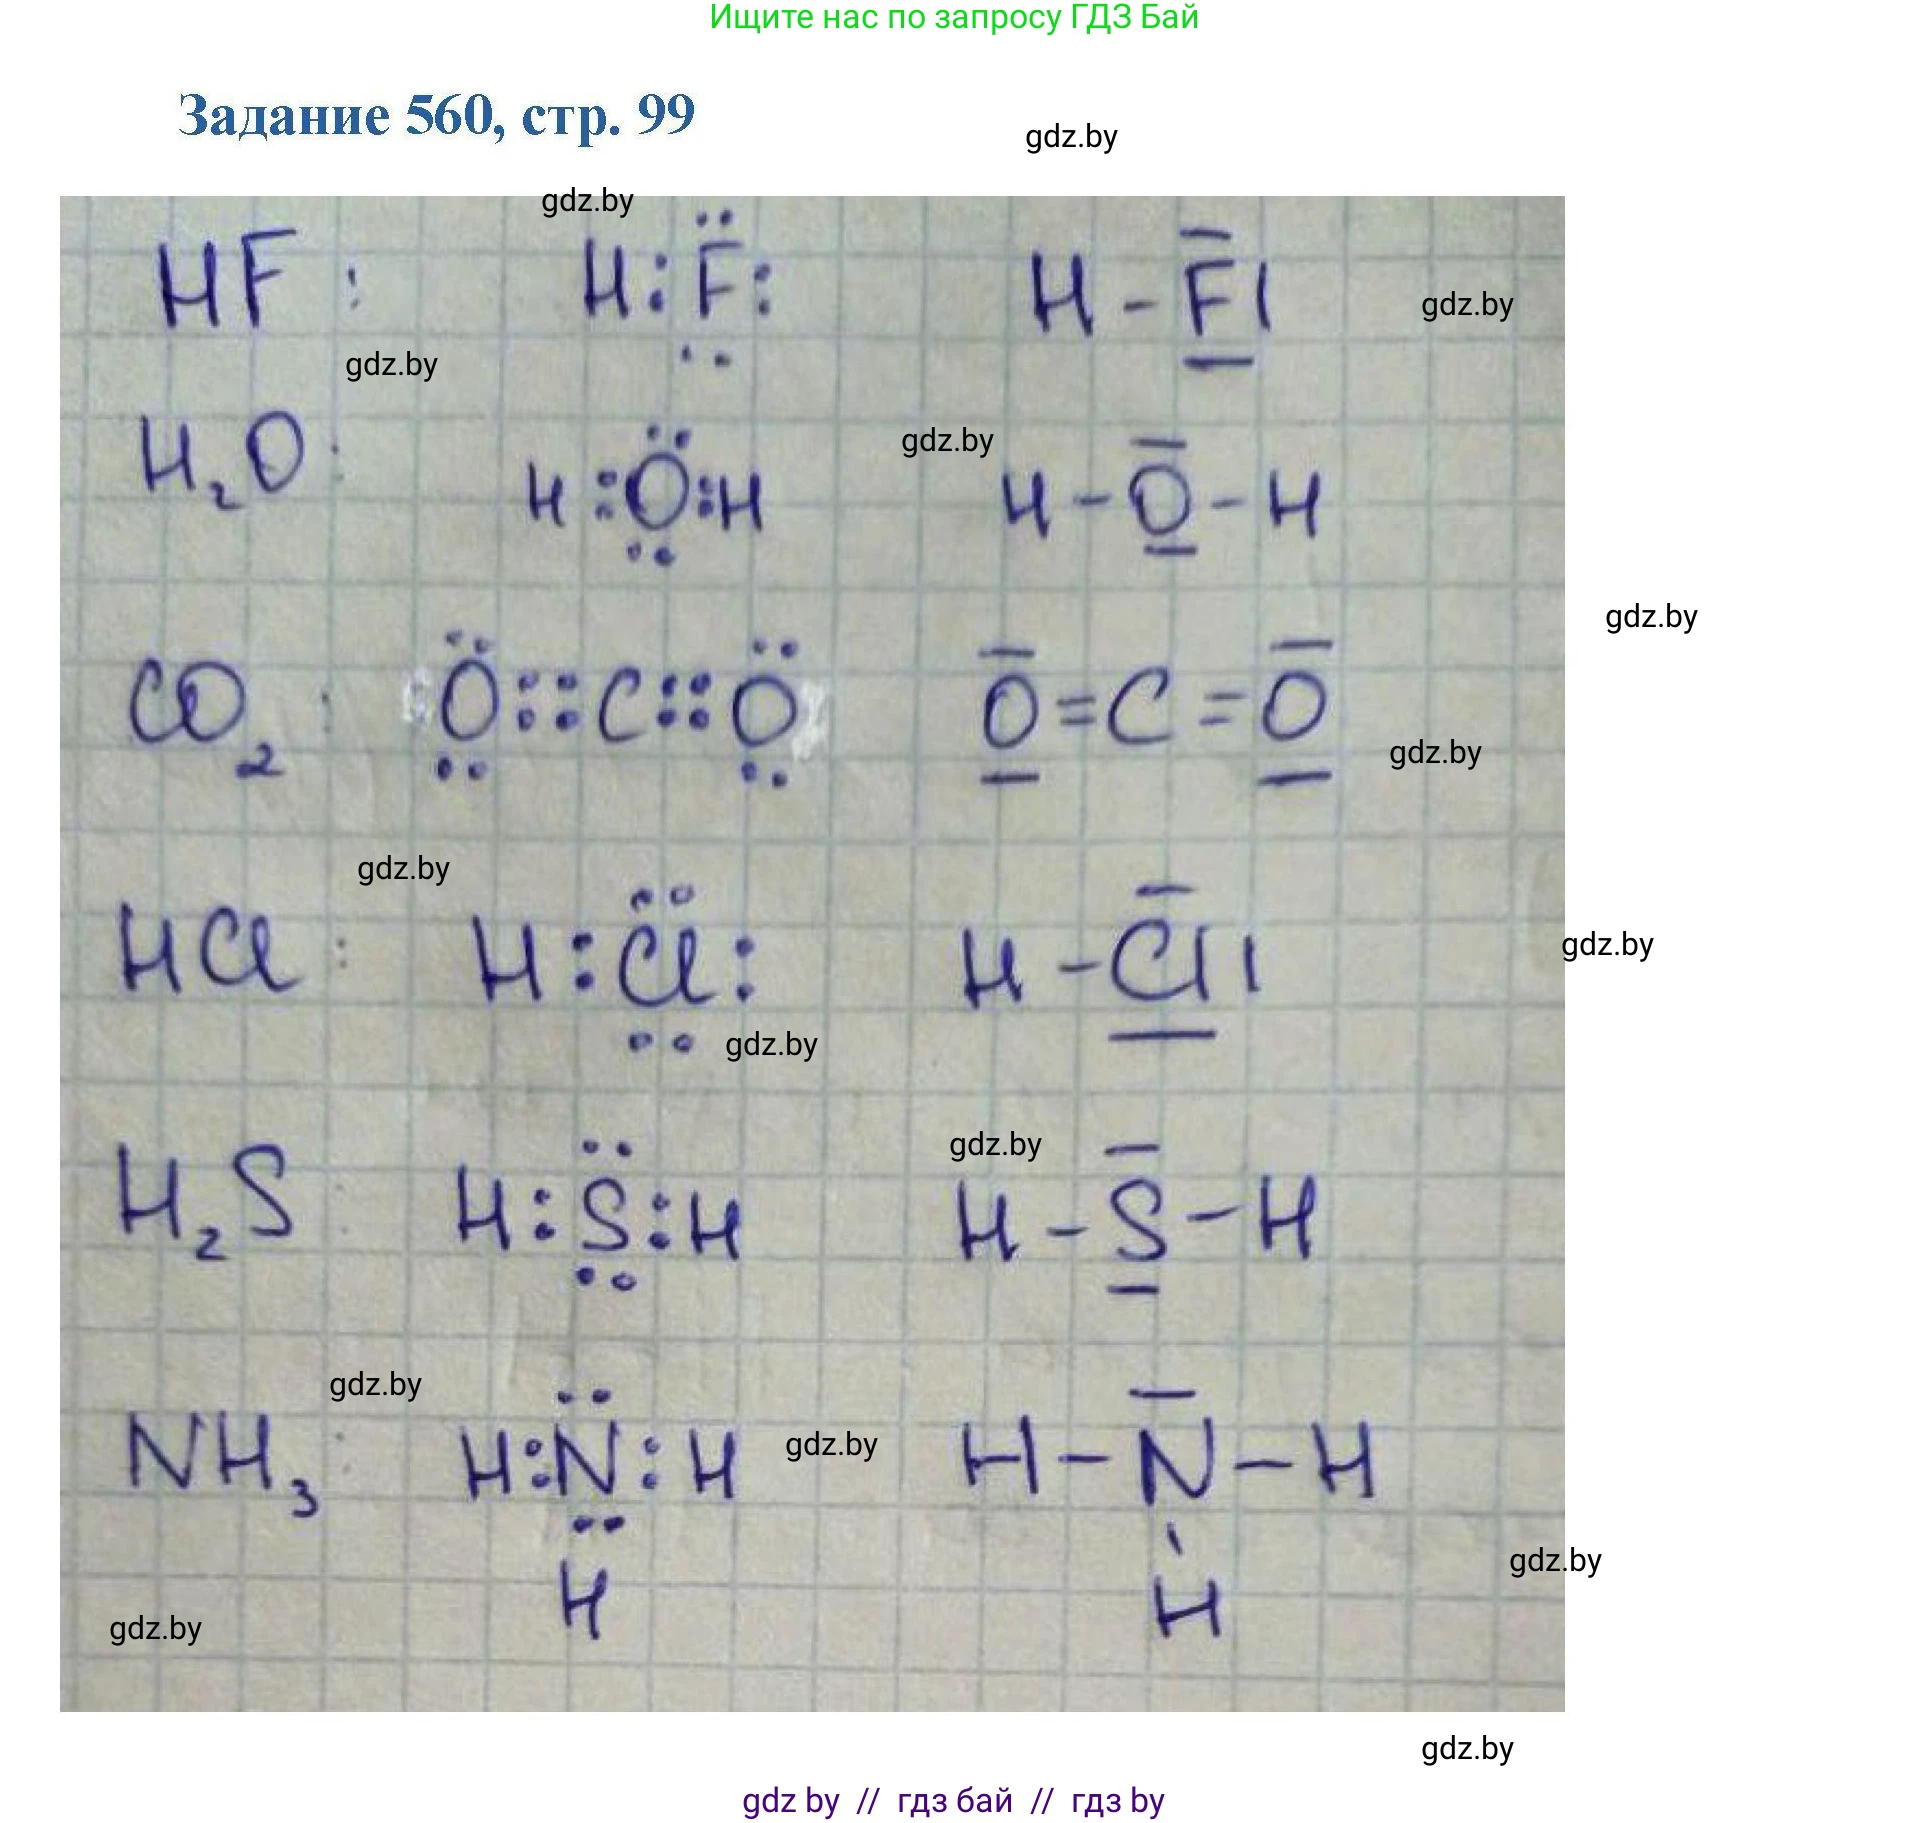 Ищите нас по запросу ГДЗ Бай
Задание 560, стр. 99
gdz.by
gdz.by
HF : H : F : H - F |
gdz.by
gdz.by
H₂O : H : O : H H - O - H
gdz.by
gdz.by
CO₂ : O :: C :: O O = C = O
gdz.by
gdz.by
HCl : H : Cl : H - Cl |
gdz.by
gdz.by
gdz.by
H₂S : H : S : H H - S - H
gdz.by
NH₃ : H : N : H H - N - H
gdz.by
H H
gdz.by
gdz.by
gdz.by
gdz by // гдз бай // гдз by